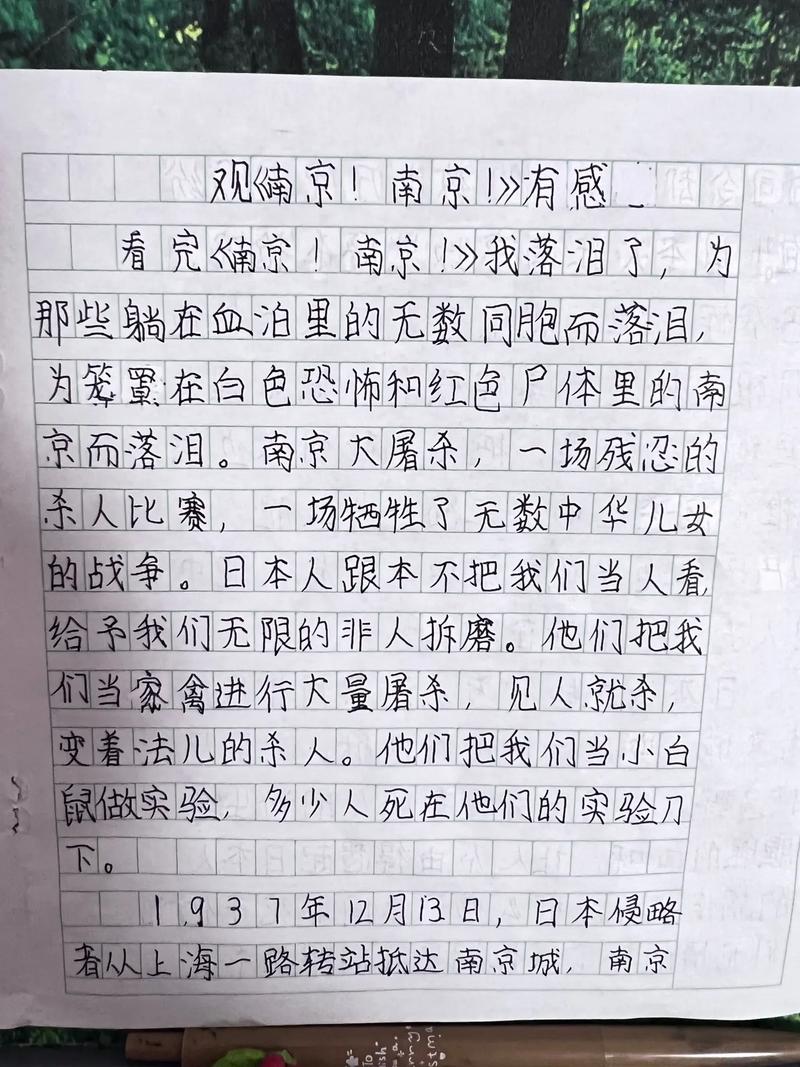 观《南京！南京！》有感
看完《南京！南京！》我落泪了，为
那些躺在血泊里的无数同胞而落泪，
为笼罩在白色恐怖和红色尸体里的南
京而落泪。南京大屠杀，一场残忍的
杀人比赛，一场牺牲了无数中华儿女
的战争。日本人跟本不把我们当人看，
给予我们无限的非人拆磨。他们把我
们当家禽进行大量屠杀，见人就杀，
变着法儿的杀人。他们把我们当小白
鼠做实验，多少人死在他们的实验刀
下。
1937年12月13日，日本侵略
者从上海一路转站抵达南京城，南京